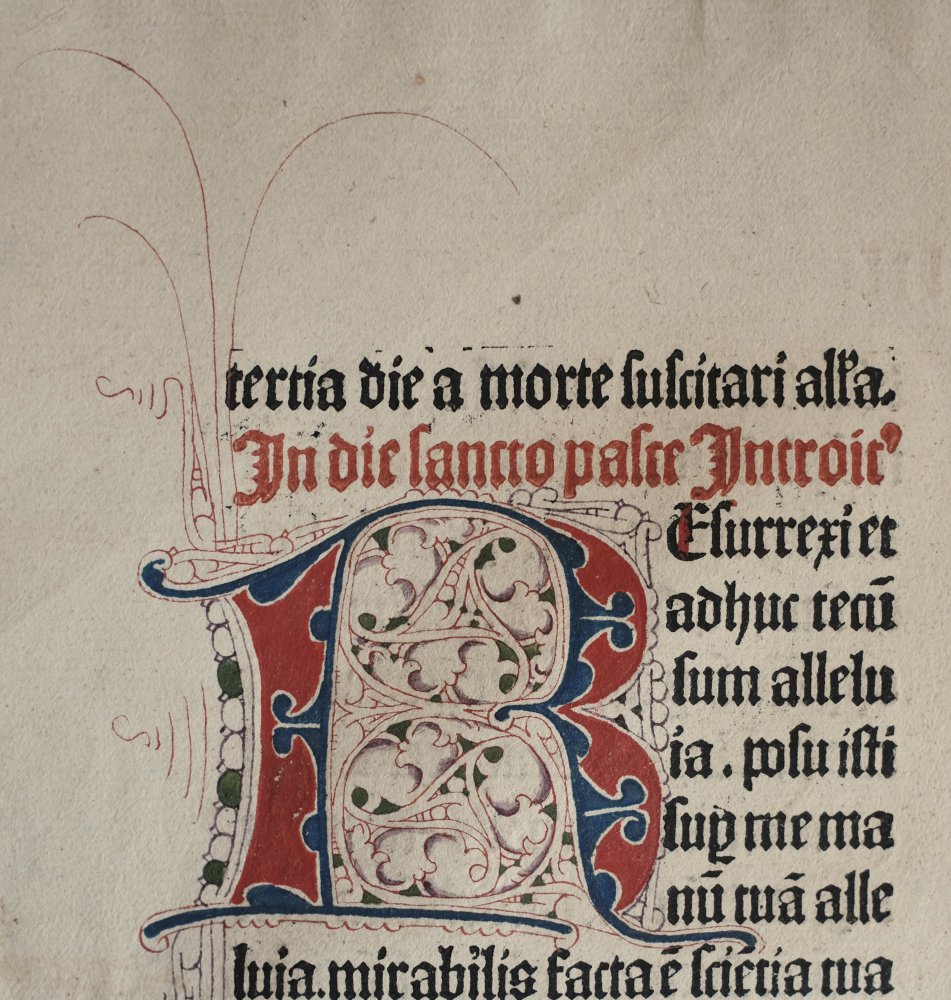 tertia die a morte suscitari all'a.
In die sancto pasce Introit'
R Esurrexi et
adhuc tecū
sum allelu
ia. posuisti
suꝑ me ma
nū tuā alle
luia. mirabilis facta ē sciētia tua